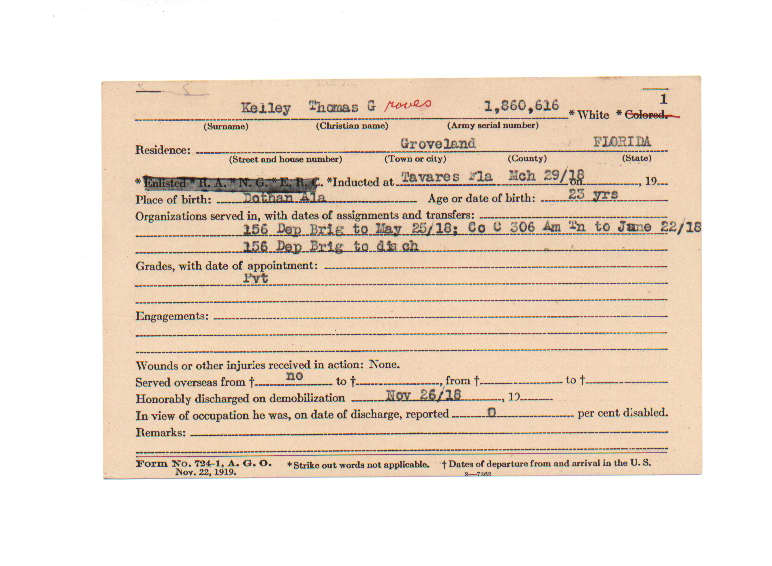 1
Kelley Thomas G roves 1,860,616 * White * Colored.
(Surname) (Christian name) (Army serial number)
Residence: Groveland FLORIDA
(Street and house number) (Town or city) (County) (State)
* Enlisted * R. A. * N. G. * E. R. C. *Inducted at Tavares Fla Mch 29/18 on , 19
Place of birth: Dothan Ala Age or date of birth: 23 yrs
Organizations served in, with dates of assignments and transfers:
156 Dep Brig to May 25/18; Co C 306 Am Tn to June 22/18
156 Dep Brig to disch
Grades, with date of appointment:
Pvt
Engagements:
Wounds or other injuries received in action: None.
Served overseas from † no to † , from † to †
Honorably discharged on demobilization Nov 26/18 , 19
In view of occupation he was, on date of discharge, reported 0 per cent disabled.
Remarks:
Form No. 724-1, A. G. O. *Strike out words not applicable. † Dates of departure from and arrival in the U. S.
Nov. 22, 1919.